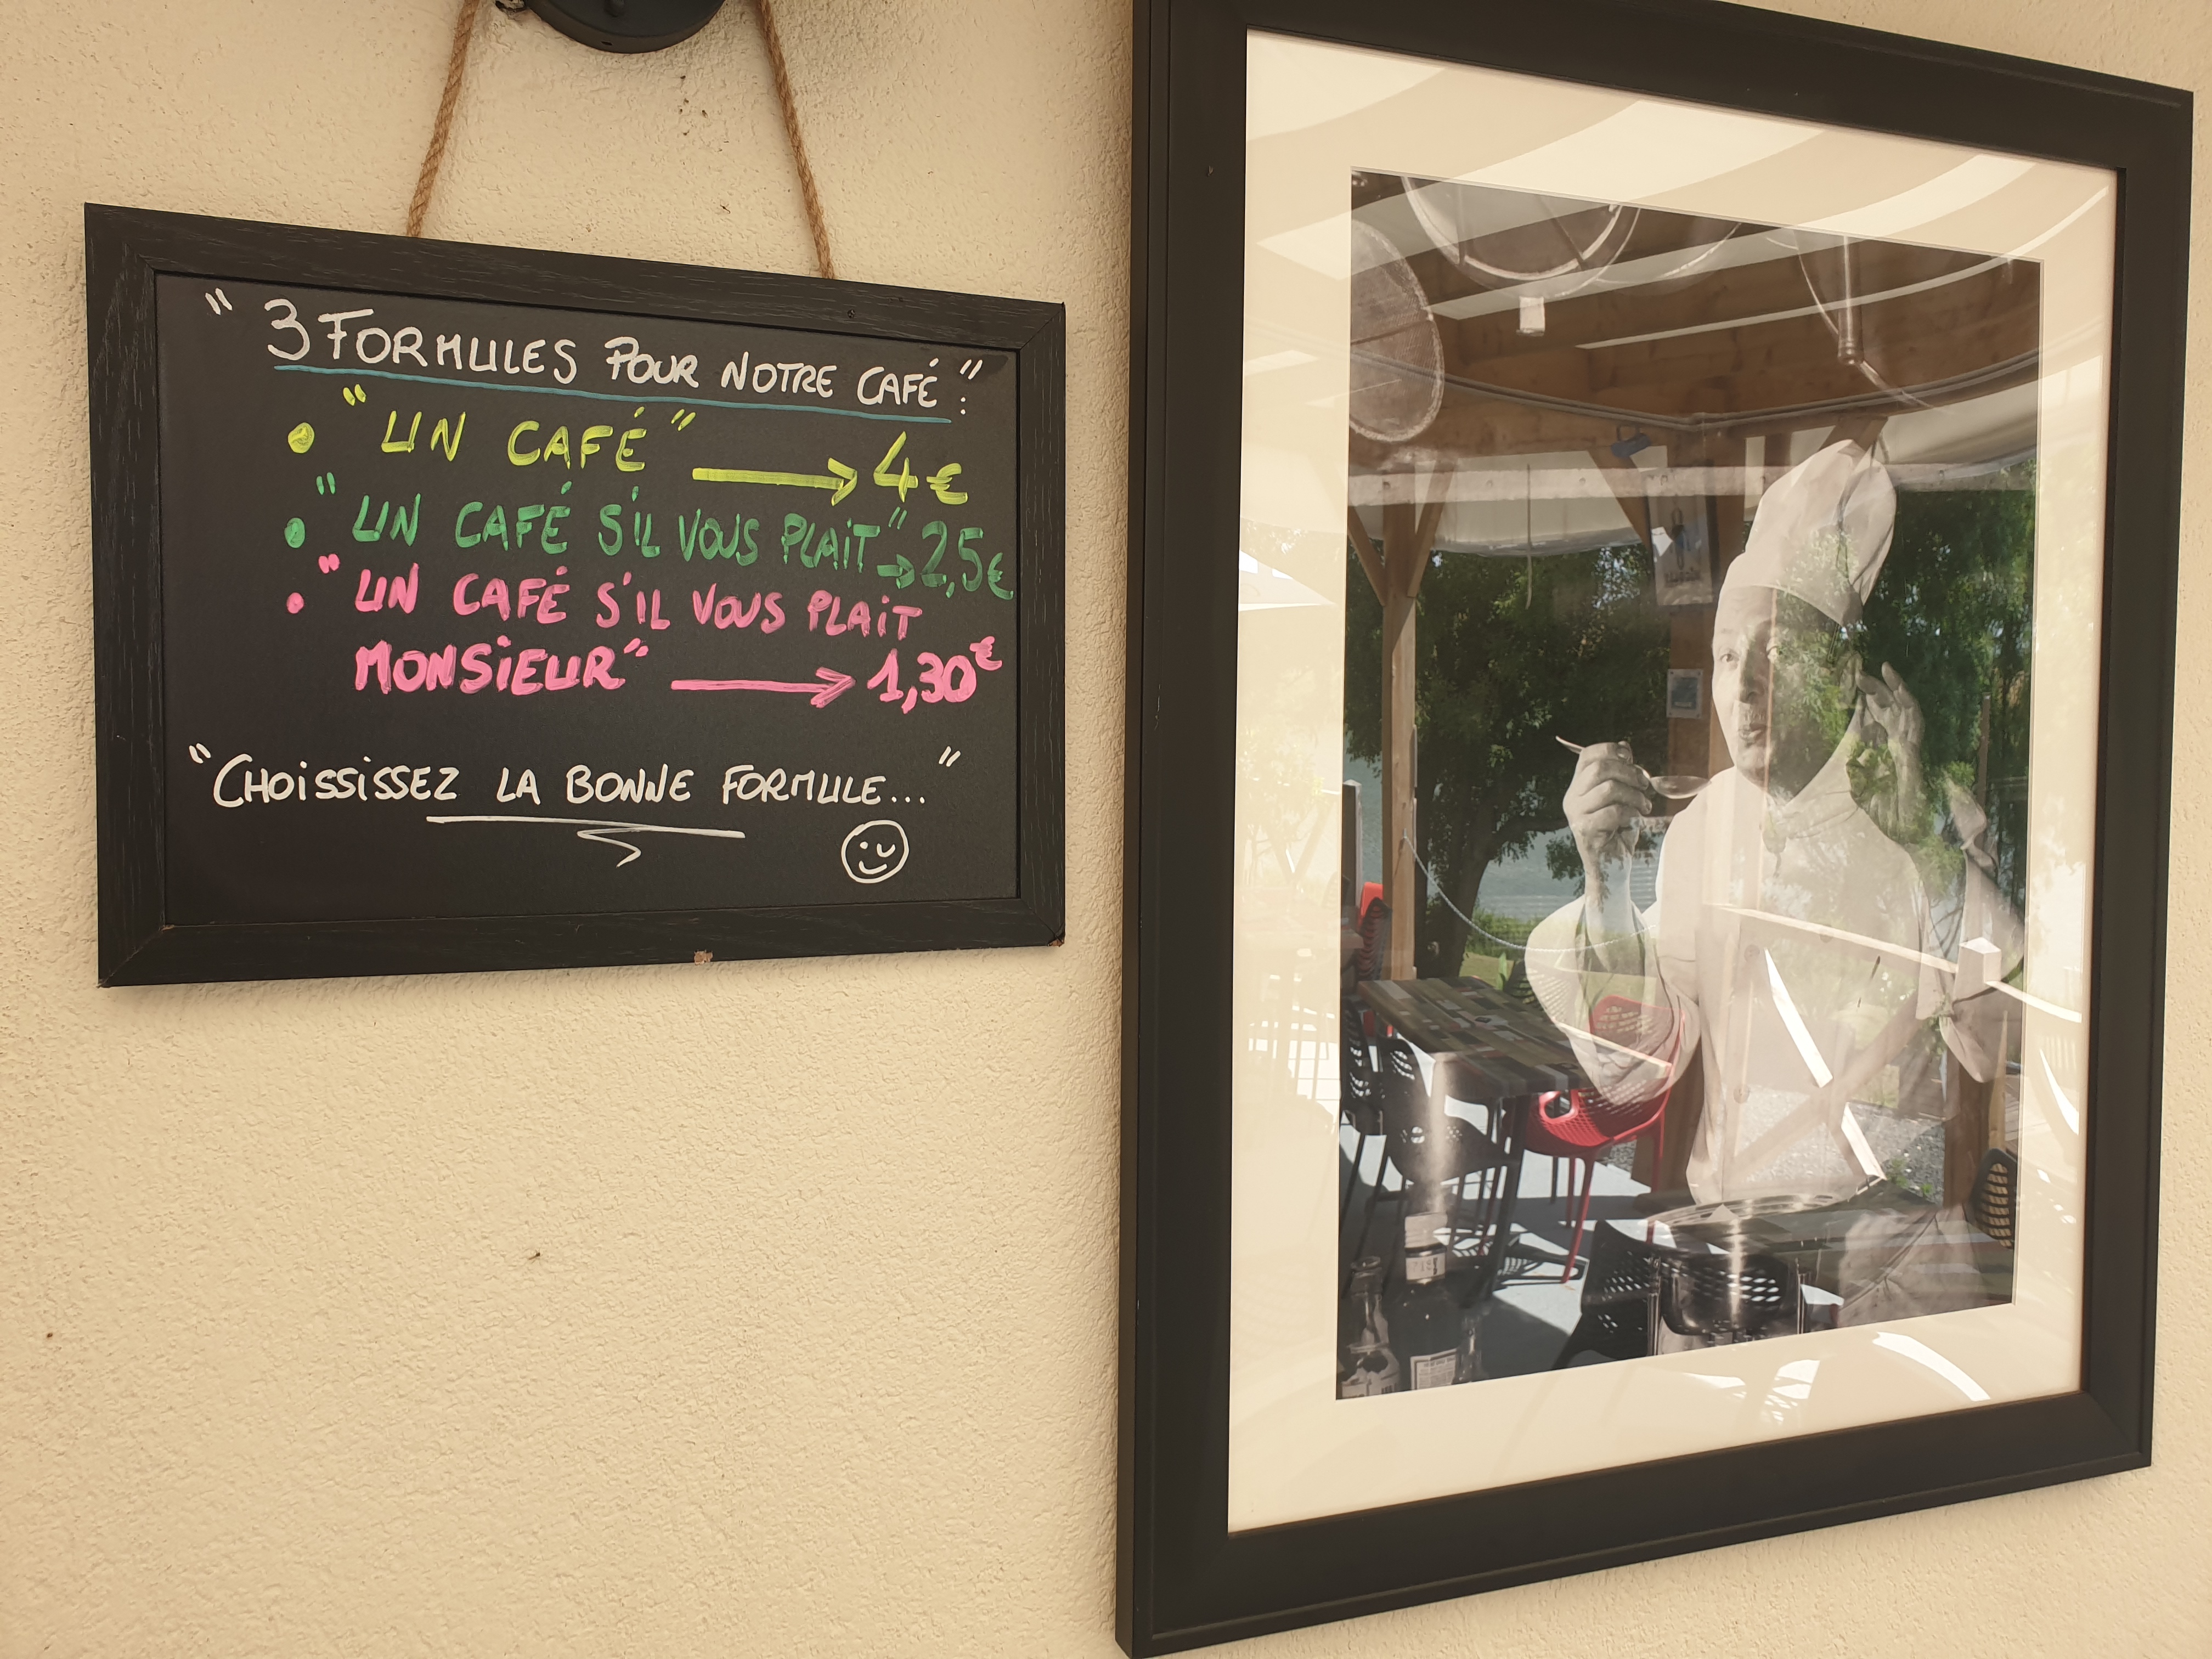 "3 FORMULES POUR NOTRE CAFÉ":
• "UN CAFÉ" → 4€
• "UN CAFÉ S'IL VOUS PLAIT" → 2,5€
• "UN CAFÉ S'IL VOUS PLAIT
MONSIEUR" → 1,30€
"CHOISSISSEZ LA BONNE FORMULE..."